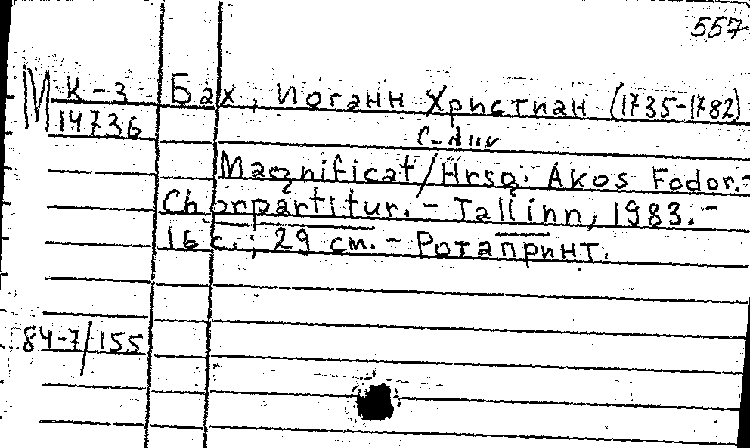 557
М К-3 Бах, Иоганн Христиан (1735-1782)
14736
C-dur
Magnificat/Hrsg. Akos Fodor.-
Chorpartitur. - Tallinn, 1983. -
16 с.; 29 см. - Ротапринт.
84-7/155